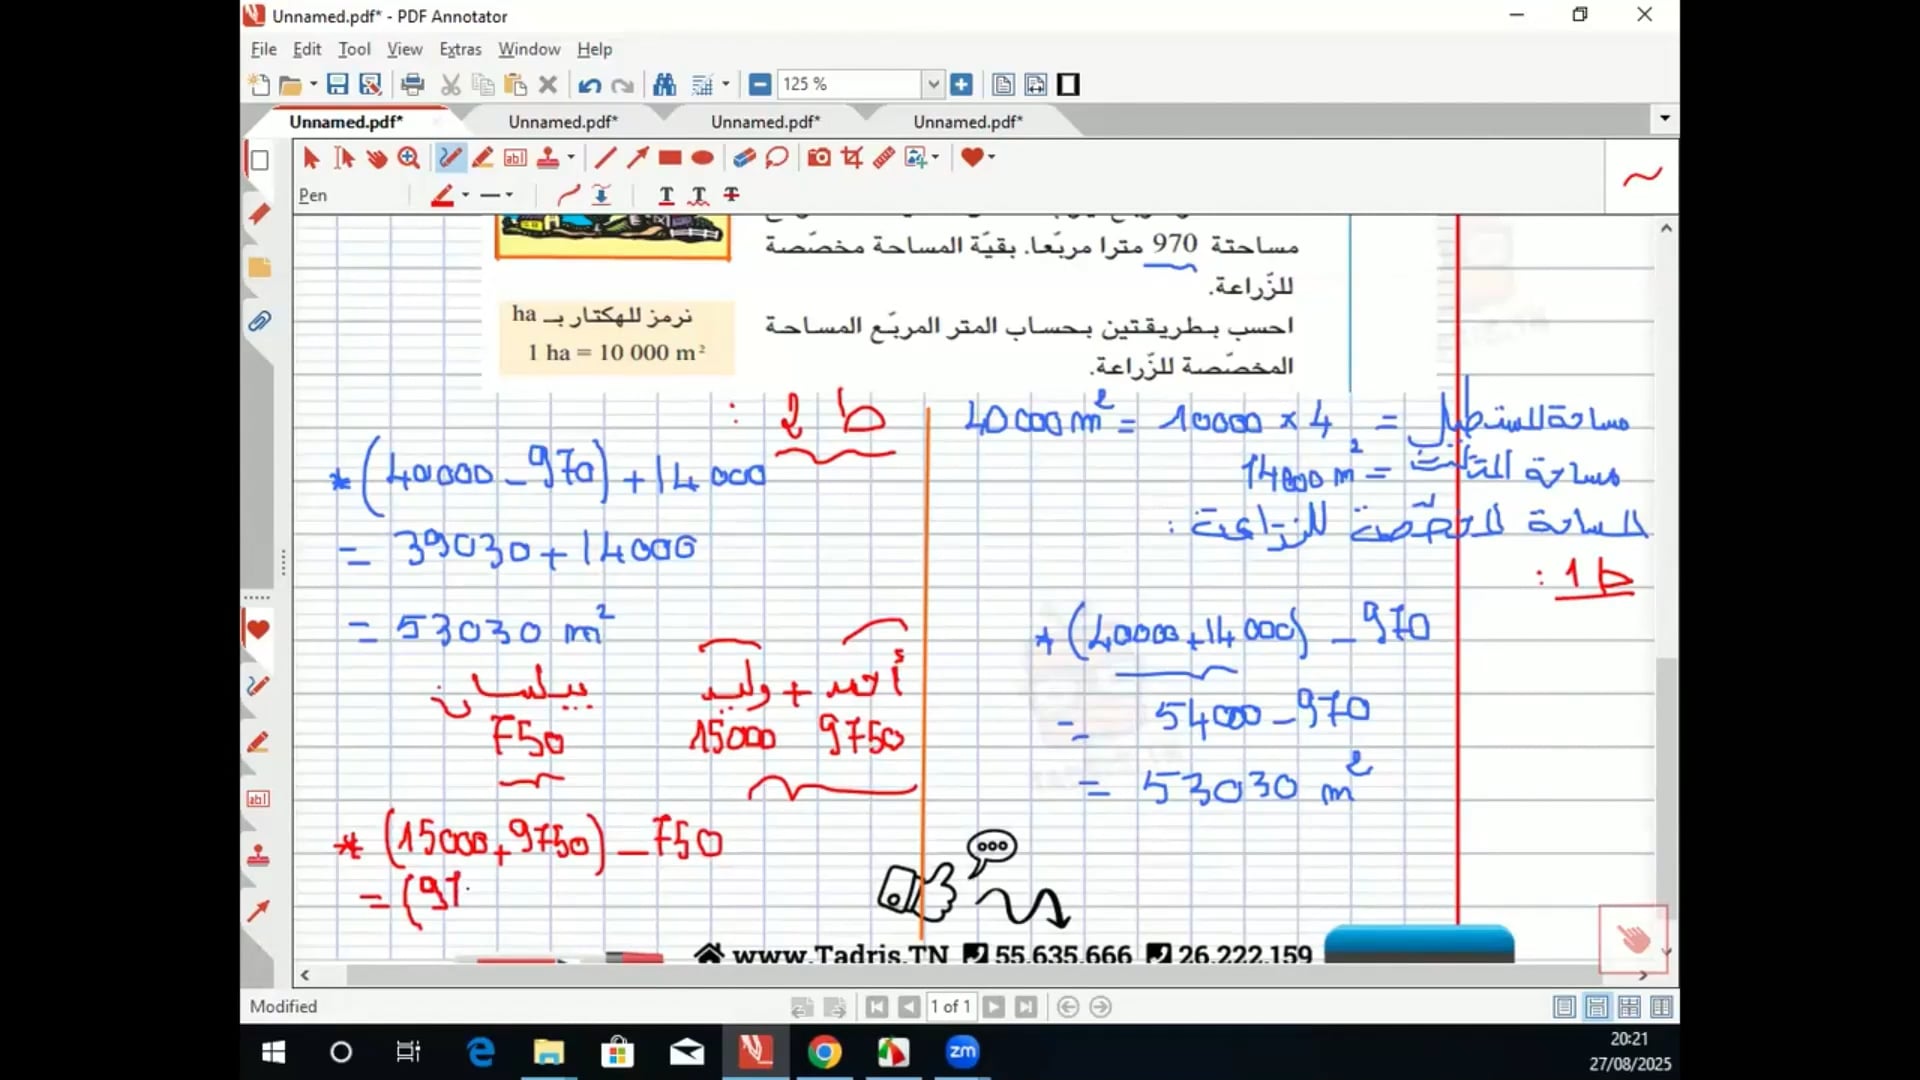 Unnamed.pdf* - PDF Annotator
File Edit Tool View Extras Window Help
125 %
Unnamed.pdf* Unnamed.pdf* Unnamed.pdf* Unnamed.pdf*
Pen
مساحتة 970 مترا مربّعا. بقيّة المساحة مخصّصة
للزّراعة.
احسب بطريقتين بحساب المتر المربّع المساحة
المخصّصة للزّراعة.
نرمز للهكتار بـ ha
1 ha = 10 000 m²
مساحة المستطيل = 4 × 10000 = 40000 m²
مساحة المثلث = 14000 m²
المساحة المخصّصة للزراعة :
ط 1 :
* (40000 + 14000) - 970
= 54000 - 970
= 53030 m²
ط 2 :
* (40000 - 970) + 14000
= 39030 + 14000
= 53030 m²
أحمد + وليد بيلسان
9750 15000 750
* (15000 + 9750) - 750
= (97
www.Tadris.TN 55.635.666 26.222.159
Modified
1 of 1
zm
20:21
27/08/2025